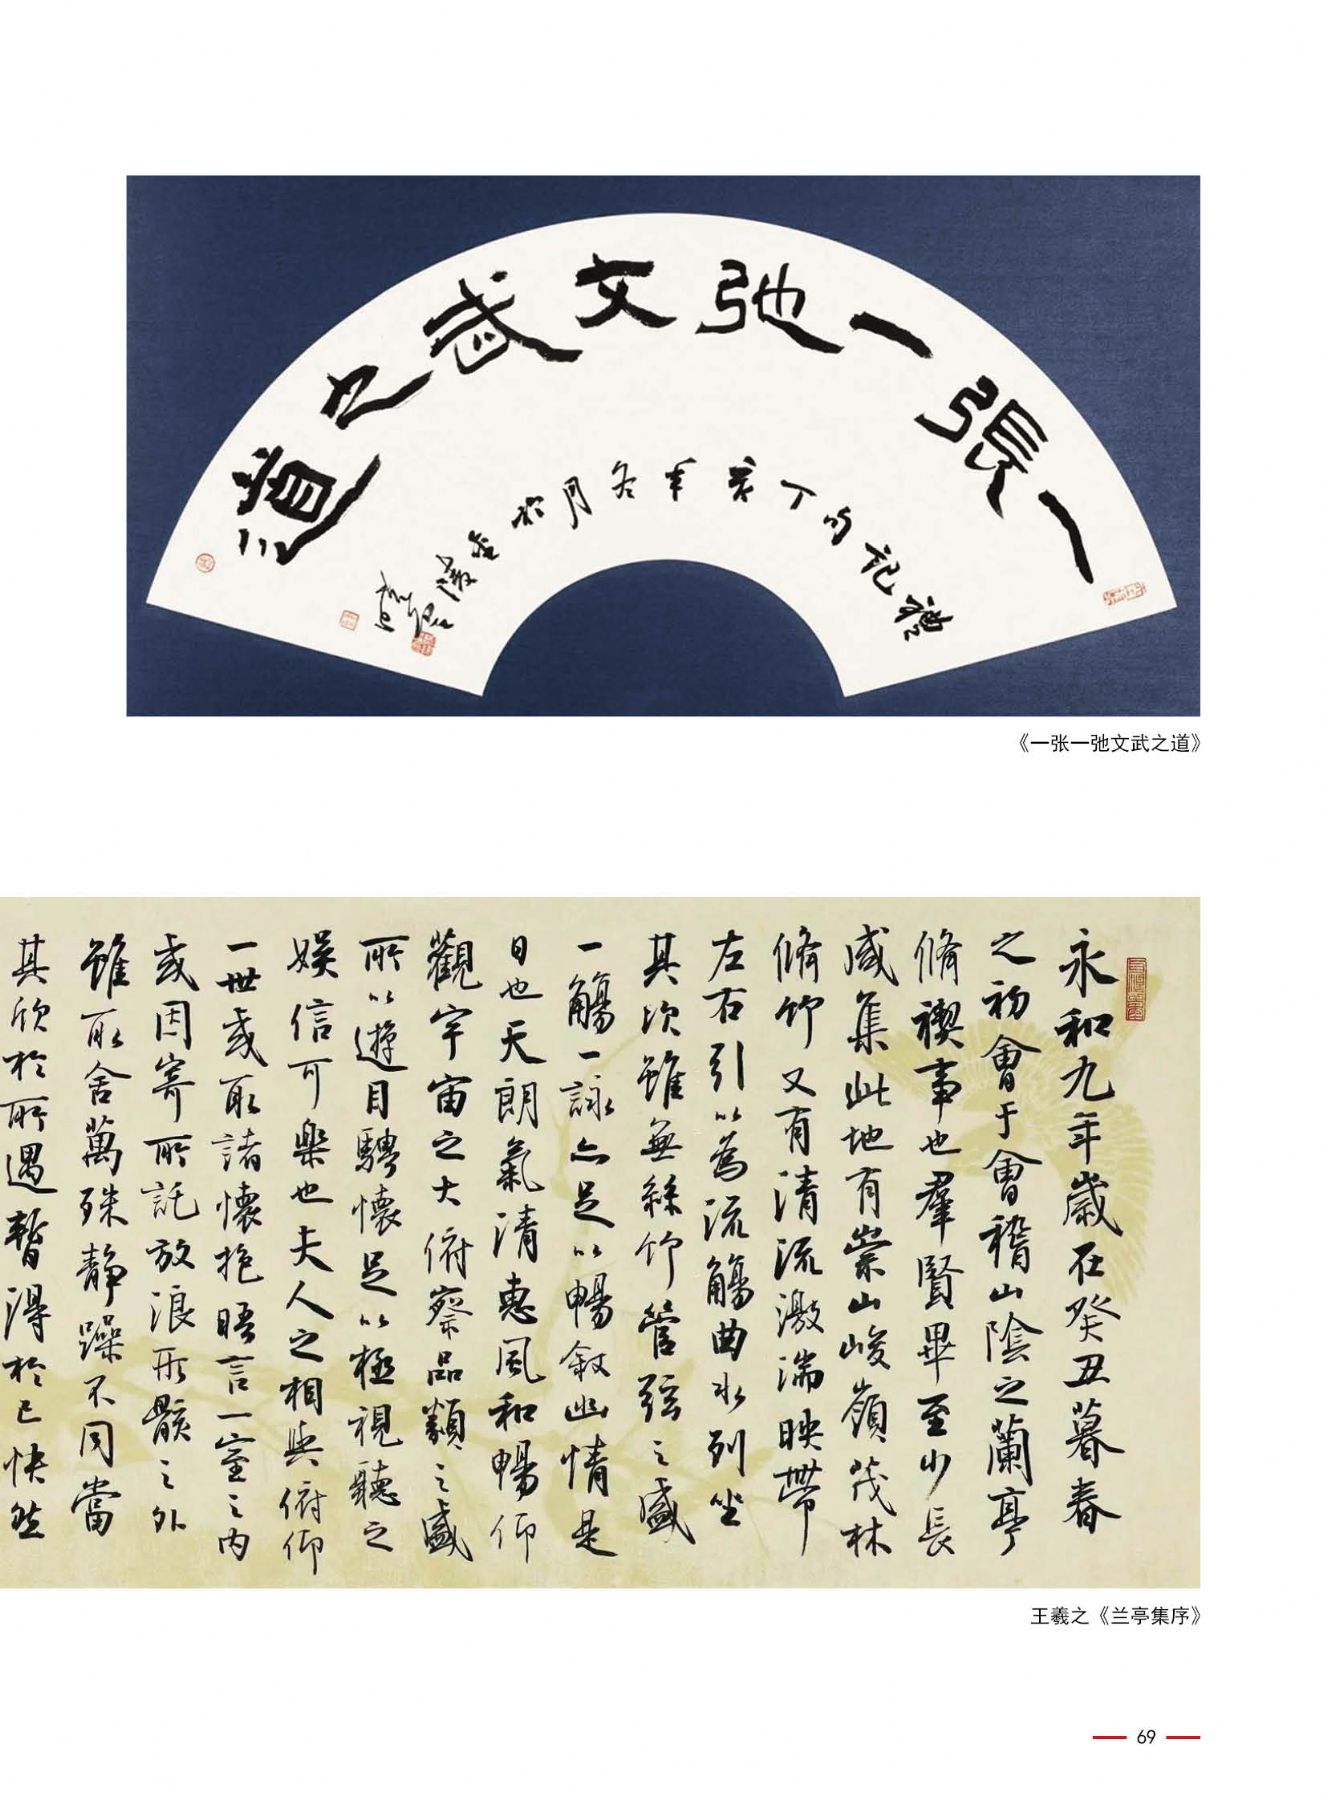 一張一弛文武之道
禮記句丁亥年冬月於金陵
《一张一弛文武之道》
永和九年歲在癸丑暮春
之初會于會稽山陰之蘭亭
脩禊事也羣賢畢至少長
咸集此地有崇山峻嶺茂林
脩竹又有清流激湍映帶
左右引以為流觴曲水列坐
其次雖無絲竹管弦之盛
一觴一詠亦足以暢敘幽情是
日也天朗氣清惠風和暢仰
觀宇宙之大俯察品類之盛
所以遊目騁懷足以極視聽之
娛信可樂也夫人之相與俯仰
一世或取諸懷抱晤言一室之內
或因寄所託放浪形骸之外
雖取舍萬殊靜躁不同當
其欣於所遇暫得於己快然
王羲之《兰亭集序》
69